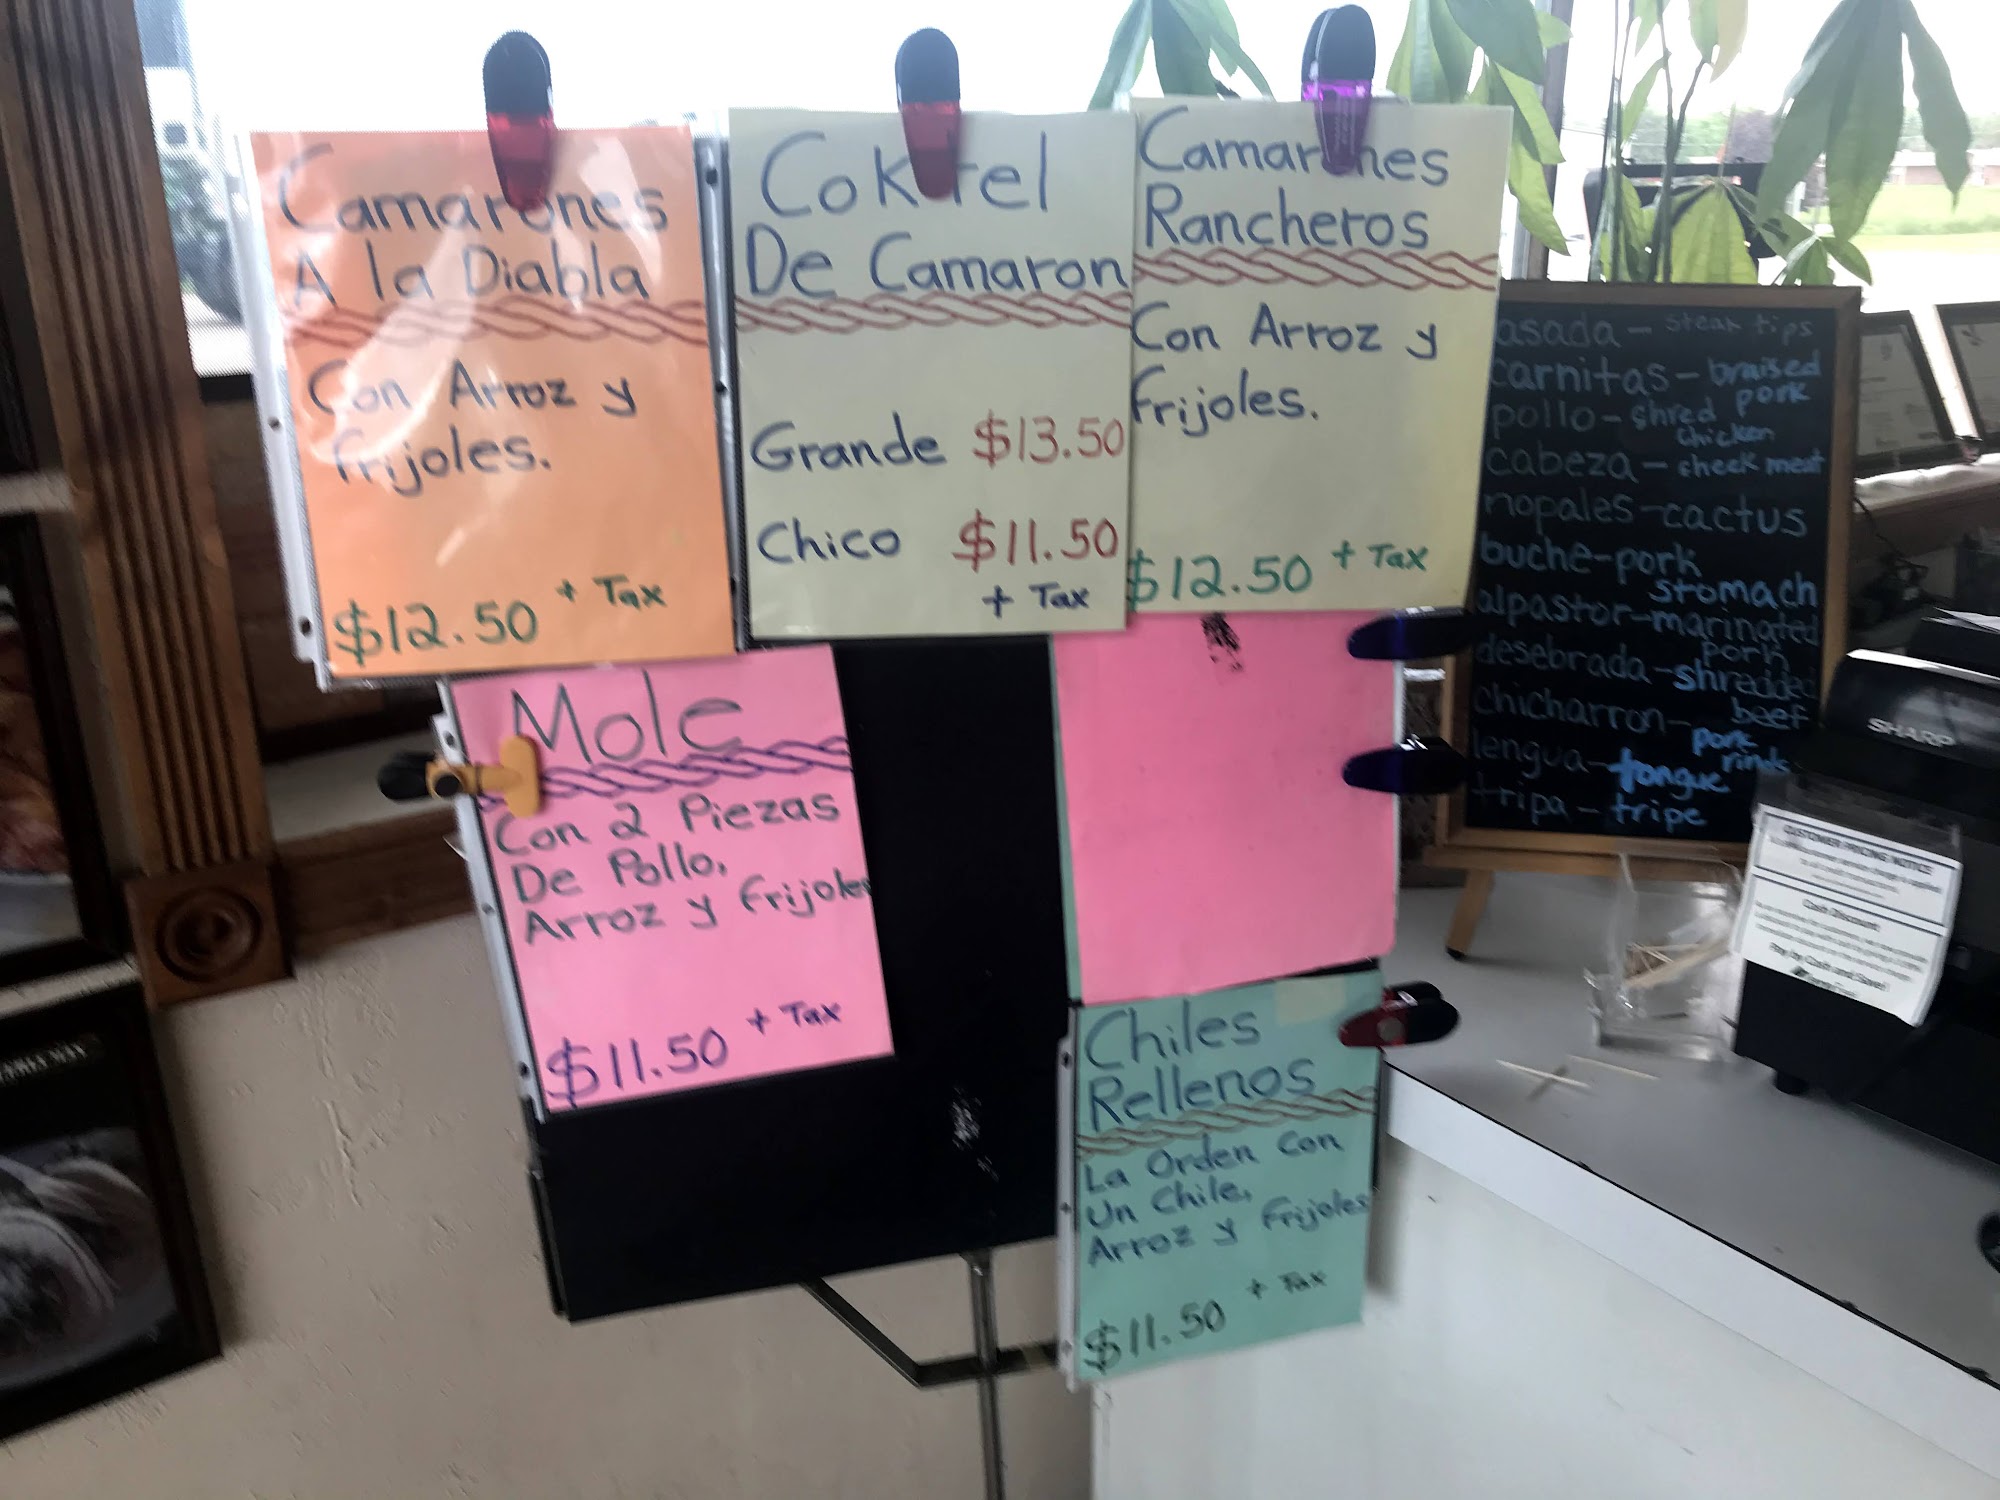 Camarones
A la Diabla
Con Arroz y
frijoles.
$12.50 + Tax
Coktel
De Camaron
Grande $13.50
Chico $11.50
+ Tax
Camarones
Rancheros
Con Arroz y
frijoles.
$12.50 + Tax
Mole
Con 2 Piezas
De Pollo,
Arroz y frijoles
$11.50 + Tax
Chiles
Rellenos
La Orden Con
Un Chile,
Arroz y frijoles
$11.50 + Tax
asada - steak tips
carnitas - braised
pork
pollo - shred
chicken
cabeza - cheek meat
nopales - cactus
buche - pork
stomach
alpastor - marinated
pork
desebrada - shredded
beef
chicharron - pork
rinds
lengua - tongue
tripa - tripe
SHARP
CUSTOMER PRICING NOTICE
Cash Discount
Pay by Cash and Save!